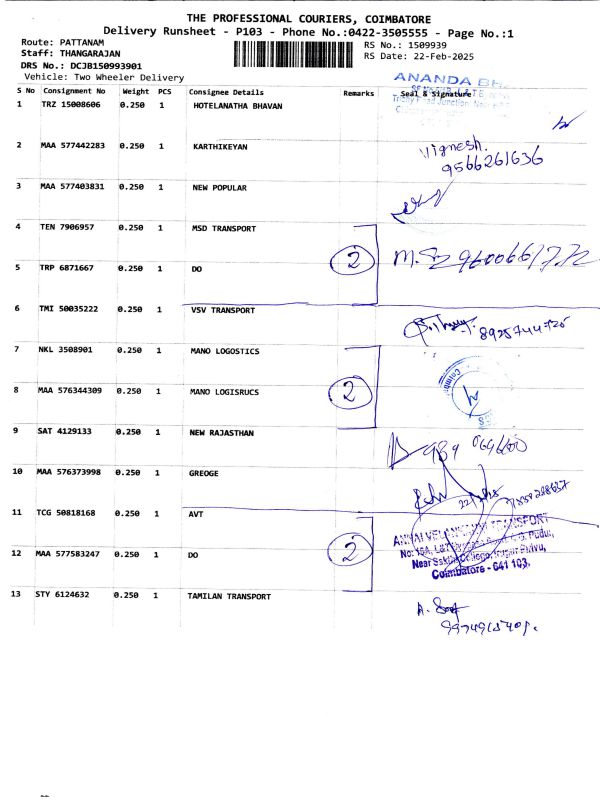 THE PROFESSIONAL COURIERS, COIMBATORE
Delivery Runsheet - P103 - Phone No.:0422-3505555 - Page No.:1
Route: PATTANAM
RS No.: 1509939
Staff: THANGARAJAN
RS Date: 22-Feb-2025
DRS No.: DCJB150993901
Vehicle: Two Wheeler Delivery
S No Consignment No Weight PCS Consignee Details Remarks Seal & Signature
ANANDA BH
1 TRZ 15008606 0.250 1 HOTELANATHA BHAVAN
2 MAA 577442283 0.250 1 KARTHIKEYAN
Vignesh.
9566261636
3 MAA 577403831 0.250 1 NEW POPULAR
4 TEN 7906957 0.250 1 MSD TRANSPORT
2
5 TRP 6871667 0.250 1 DO
6 TMI 50035222 0.250 1 VSV TRANSPORT
7 NKL 3508901 0.250 1 MANO LOGOSTICS
2
8 MAA 576344309 0.250 1 MANO LOGISRUCS
9 SAT 4129133 0.250 1 NEW RAJASTHAN
10 MAA 576373998 0.250 1 GREOGE
11 TCG 50818168 0.250 1 AVT
2
12 MAA 577583247 0.250 1 DO
Coimbatore - 641 103.
13 STY 6124632 0.250 1 TAMILAN TRANSPORT